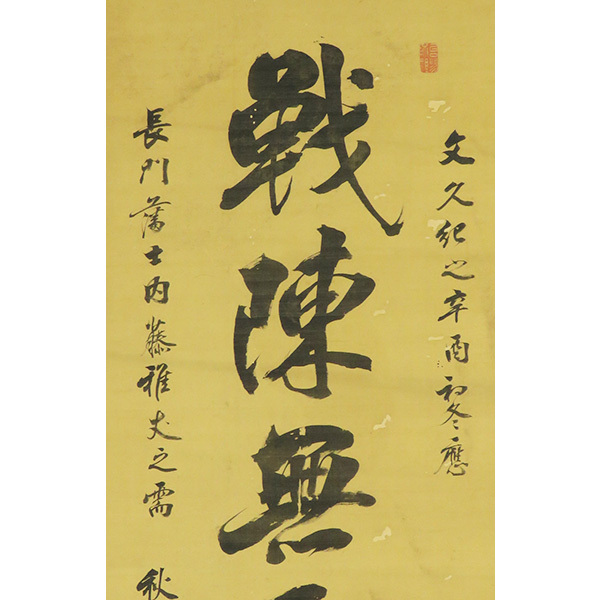 文久紀之辛酉初冬應
戰陳無
長門藩士内藤雅丈之需 秋